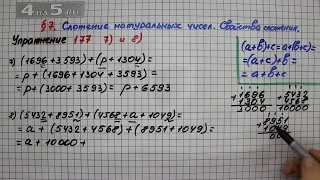 4 ПА 5.RU
§7. Сложение натуральных чисел. Свойства сложения.
Упражнение 177 7) и 8)
7) (1696+3593)+(p+1304)=
=p+(1696+1304+3593)=
=p+(3000+3593)=p+6593
8) (5432+8951)+(4568+a+1049)=
=a+(5432+4568)+(8951+1049)=
=a+10000+
(a+b)+c=a+(b+c)=
=(a+c)+b=
=a+b+c
+1696
1304
3000
+5432
4568
10000
+8951
1049